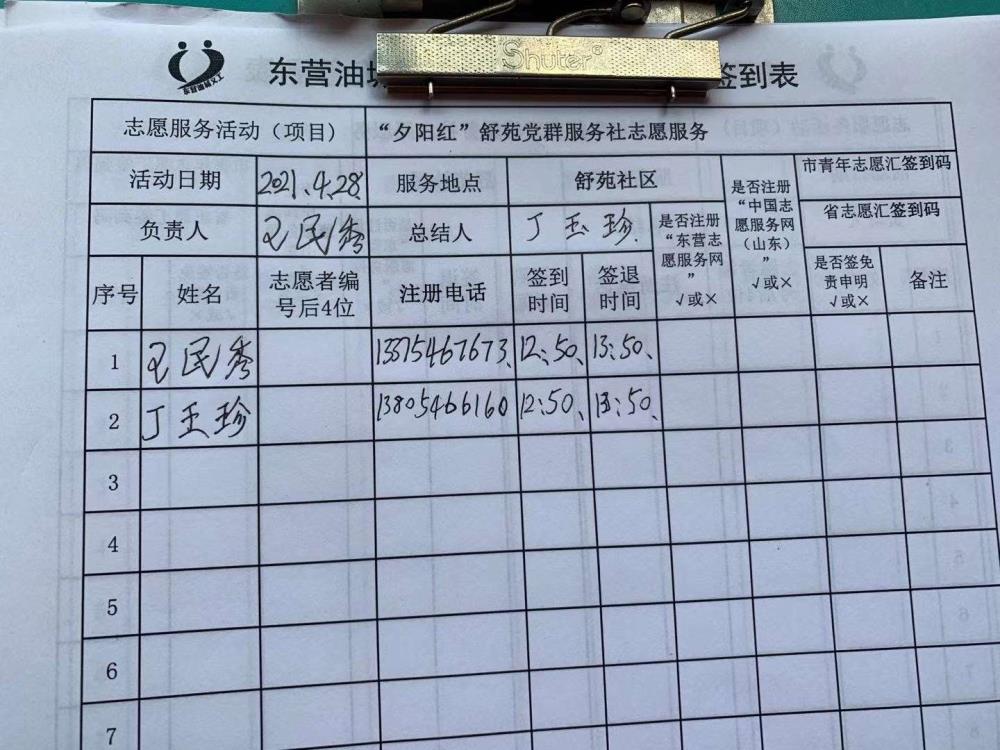 Shuter®
东营油城义工
东营油城 签到表
志愿服务活动（项目） “夕阳红”舒苑党群服务社志愿服务
活动日期 2021.4.28 服务地点 舒苑社区 是否注册“中国志愿服务网（山东）”√或× 市青年志愿汇签到码
负责人 王民秀 总结人 丁玉珍 是否注册“东营志愿服务网”√或× 省志愿汇签到码
序号 姓名 志愿者编号后4位 注册电话 签到时间 签退时间 是否签免责申明√或× 备注
1 王民秀 13375467673、 12:50、 13:50、
2 丁玉珍 13805466160 12:50、 13:50、
3
4
5
6
7